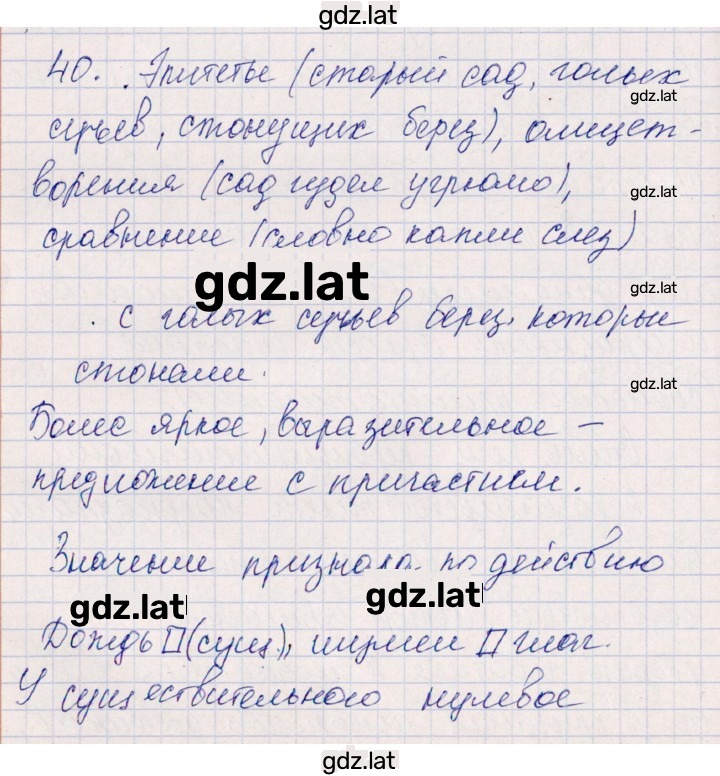 gdz.lat
40. Эпитеты (старый сад, голых
gdz.lat
сучьев, стонущих берез), олицет-
ворения (сад гудел угрюмо),
gdz.lat
сравнение (словно капли слез)
gdz.lat
gdz.lat
с голых сучьев берез, которые
стонали.
gdz.lat
Более яркое, выразительное –
предложение с причастием.
Значение признака по действию
gdz.lat
gdz.lat
Дождь □(сущ.), ширмы □ глаг.
У существительного нулевое
gdz.lat